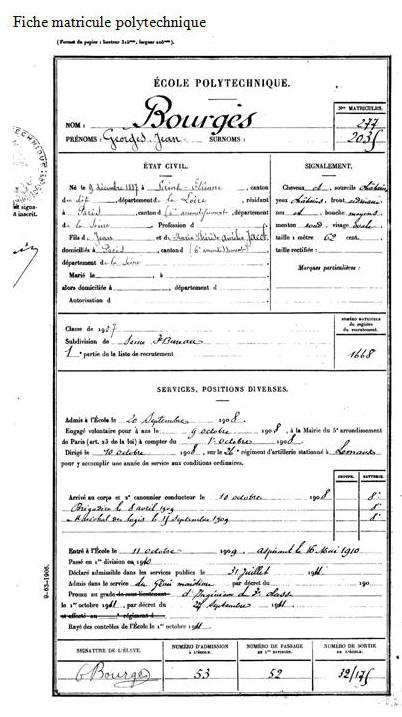 Fiche matricule polytechnique
(Format du papier : hauteur 315mm, largeur 205mm.)
ÉCOLE POLYTECHNIQUE.
NOM : Bourgès
PRÉNOMS : Georges, Jean SURNOMS :
Nos MATRICULES.
277
2035
ÉTAT CIVIL.
Né le 9 décembre 1887 à Saint Étienne, canton
du dit, département de la Loire, résidant
à Paris, canton 6e arrondissement, département
de la Seine Profession d
Fils de Jean et de Marie Jacob
domiciliés à Paris, canton (6e arrondissement)
département de la Seine
Marié le , à
alors domiciliée à , département d
Autorisation d
SIGNALEMENT.
Cheveux et sourcils châtains
yeux châtains, front ordinaire
nez et bouche moyens
menton rond, visage ovale
taille : 1 mètre 62 cent.
taille rectifiée :
Marques particulières :
Classe de 1907
Subdivision de Seine Bureau
1 e partie de la liste de recrutement
NUMÉRO MATRICULE
du registre
du recrutement.
1668
SERVICES, POSITIONS DIVERSES.
Admis à l'École le 20 Septembre 1908.
Engagé volontaire pour 4 ans le 9 octobre 1908, à la Mairie du 5e arrondissement
de Paris (art. 23 de la loi) à compter du 1er octobre 1908
Dirigé le 10 octobre 1908, sur le 26e régiment d'artillerie stationné à Lemans
pour y accomplir une année de service aux conditions ordinaires.
GROUPE. BATTERIE.
Arrivé au corps et 2e canonnier conducteur le 10 octobre 1908 8e
Brigadier le 8 avril 1909 8e
Maréchal des logis le 15 septembre 1909 8e
Entré à l'École le 11 octobre 1909 aspirant le 16 Mai 1910
Passé en 1re division en 1910
Déclaré admissible dans les services publics le 31 juillet 1911
Admis dans le service du Génie maritime par décret du 190
Promu au grade de sous-lieutenant d'Ingénieur de 3e classe
le 1er octobre 1911, par décret du 27 Septembre 1911
et affecté au régiment d
Rayé des contrôles de l'École le 1er octobre 1911
9-63-1906.
SIGNATURE DE L'ÉLÈVE. NUMÉRO D'ADMISSION à L'ÉCOLE. NUMÉRO DE PASSAGE EN 1re DIVISION. NUMÉRO DE SORTIE DE L'ÉCOLE.
G Bourgès 53 52 32/175